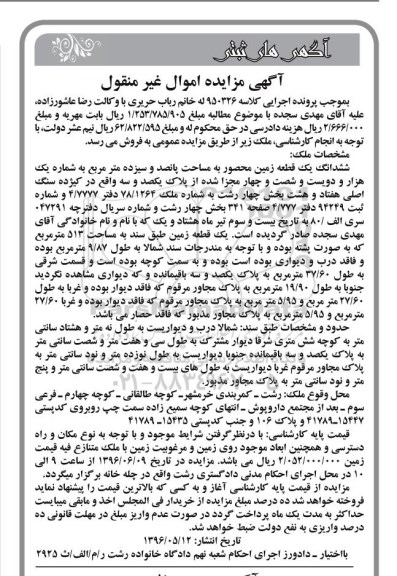 آگهی های ثبتی
آگهی مزایده اموال غیر منقول
بموجب پرونده اجرایی کلاسه ۹۵۰۳۲۶ له خانم رباب حریری با وکالت رضا عاشورزاده،
علیه آقای مهدی سجده با موضوع مطالبه مبلغ ۱/۲۵۳/۷۸۵/۹۰۵ ریال بابت مهریه و مبلغ
۲/۶۶۶/۰۰۰ ریال هزینه دادرسی در حق محکوم له و مبلغ ۶۲/۸۲۲/۵۹۵ ریال نیم عشر دولت، با
توجه به انجام کارشناسی، ملک زیر از طریق مزایده عمومی به فروش می رسد.
مشخصات ملک:
ششدانگ یک قطعه زمین محصور به مساحت پانصد و سیزده متر مربع به شماره یک
هزار و دویست و شصت و چهار مجزا شده از پلاک یکصد و سه واقع در کیژده سنگ
اصلی هفتاد و هشت بخش چهار رشت به شماره ملک ۷۸/۱۲۶۴ دفتر ۴/۷۷۷۲ و شماره
ثبت ۹۴۲۴۹ دفتر ۴/۷۷۷ صفحه ۳۴۱ بخش چهار رشت و شماره سریال دفترچه ۰۴۷۲۹۱
سری الف /۸۰ به تاریخ بیست و سوم تیر ماه هشتاد و یک که با نام و نام خانوادگی آقای
مهدی سجده صادر گردیده است. یک قطعه زمین طبق سند به مساحت ۵۱۳ مترمربع
که به صورت پشته بوده و با توجه به مندرجات سند شمالا به طول ۹/۸۷ مترمربع بوده
و فاقد درب و دیواری بوده است بوده و به سمت کوچه بوده است و قسمت شرقی
به طول ۳۷/۶۰ مترمربع به پلاک یکصد و سه باقیمانده و که دیواری مشاهده نگردید
جنوبا به طول ۱۹/۹۰ مترمربع به پلاک مجاور مرقوم که فاقد دیوار بوده و غربا به طول
۲۷/۶۰ متر مربع و ۵/۹۵ متر مربع به پلاک مجاور مرقوم که فاقد دیوار بوده و غربا ۲۷/۶۰
مترمربع و ۵/۹۵ مترمربع به پلاک مجاور مذبور که فاقد حصار می باشد.
حدود و مشخصات طبق سند: شمالا درب و دیواریست به طول نه متر و هشتاد سانتی
متر به کوچه شش متری شرقا دیوار مشترک به طول سی و هفت متر و شصت سانتی متر
به پلاک یکصد و سه باقیمانده جنوبا دیواریست به طول نوزده متر و نود سانتی متر به
پلاک مجاور مرقوم غربا دیواریست به طول های بیست و هفت و شصت سانتی متر و پنج
متر و نود سانتی متر به پلاک مجاور مذبور.
محل وقوع ملک: رشت ـ کمربندی خرمشهر ـ کوچه طالقانی ـ کوچه چهارم ـ فرعی
سوم ـ بعد از مجتمع داروپوش ـ انتهای کوچه سمیع زاده سمت چپ روبروی کدپستی
۱۵۴۴۷ـ۴۱۷۸۹ و پلاک ۱۰۶ و جنب کدپستی ۱۵۴۳۵ـ ۴۱۷۸۹
قیمت پایه کارشناسی: با درنظرگرفتن شرایط موجود و با توجه به نوع مکان و راه
دسترسی و همچنین ابعاد موجود روی زمین و مرغوبیت زمین با ملک متنازع فیه قیمت
زمین ۲/۰۵۲/۰۰۰/۰۰۰ ریال می باشد. مزایده در تاریخ ۱۳۹۶/۰۶/۰۹ از ساعت ۹ الی
۱۰ در محل اجرای احکام مدنی دادگستری رشت واقع در چله خانه برگزار میگردد.
مزایده از قیمت پایه کارشناسی آغاز و به کسی که بالاترین قیمت را پیشنهاد نماید
فروخته خواهد شد ده درصد مبلغ مزایده از خریدار فی المجلس اخذ و مابقی میبایست
حداکثر به مدت یک ماه پرداخت گردد در صورت عدم واریز مبلغ در مهلت قانونی ده
درصد واریزی به نفع دولت ضبط خواهد شد.
تاریخ انتشار: ۱۳۹۶/۰۵/۱۲
بااختیار ـ دادورز اجرای احکام شعبه نهم دادگاه خانواده رشت ر/م/الف/ث ۲۹۲۵